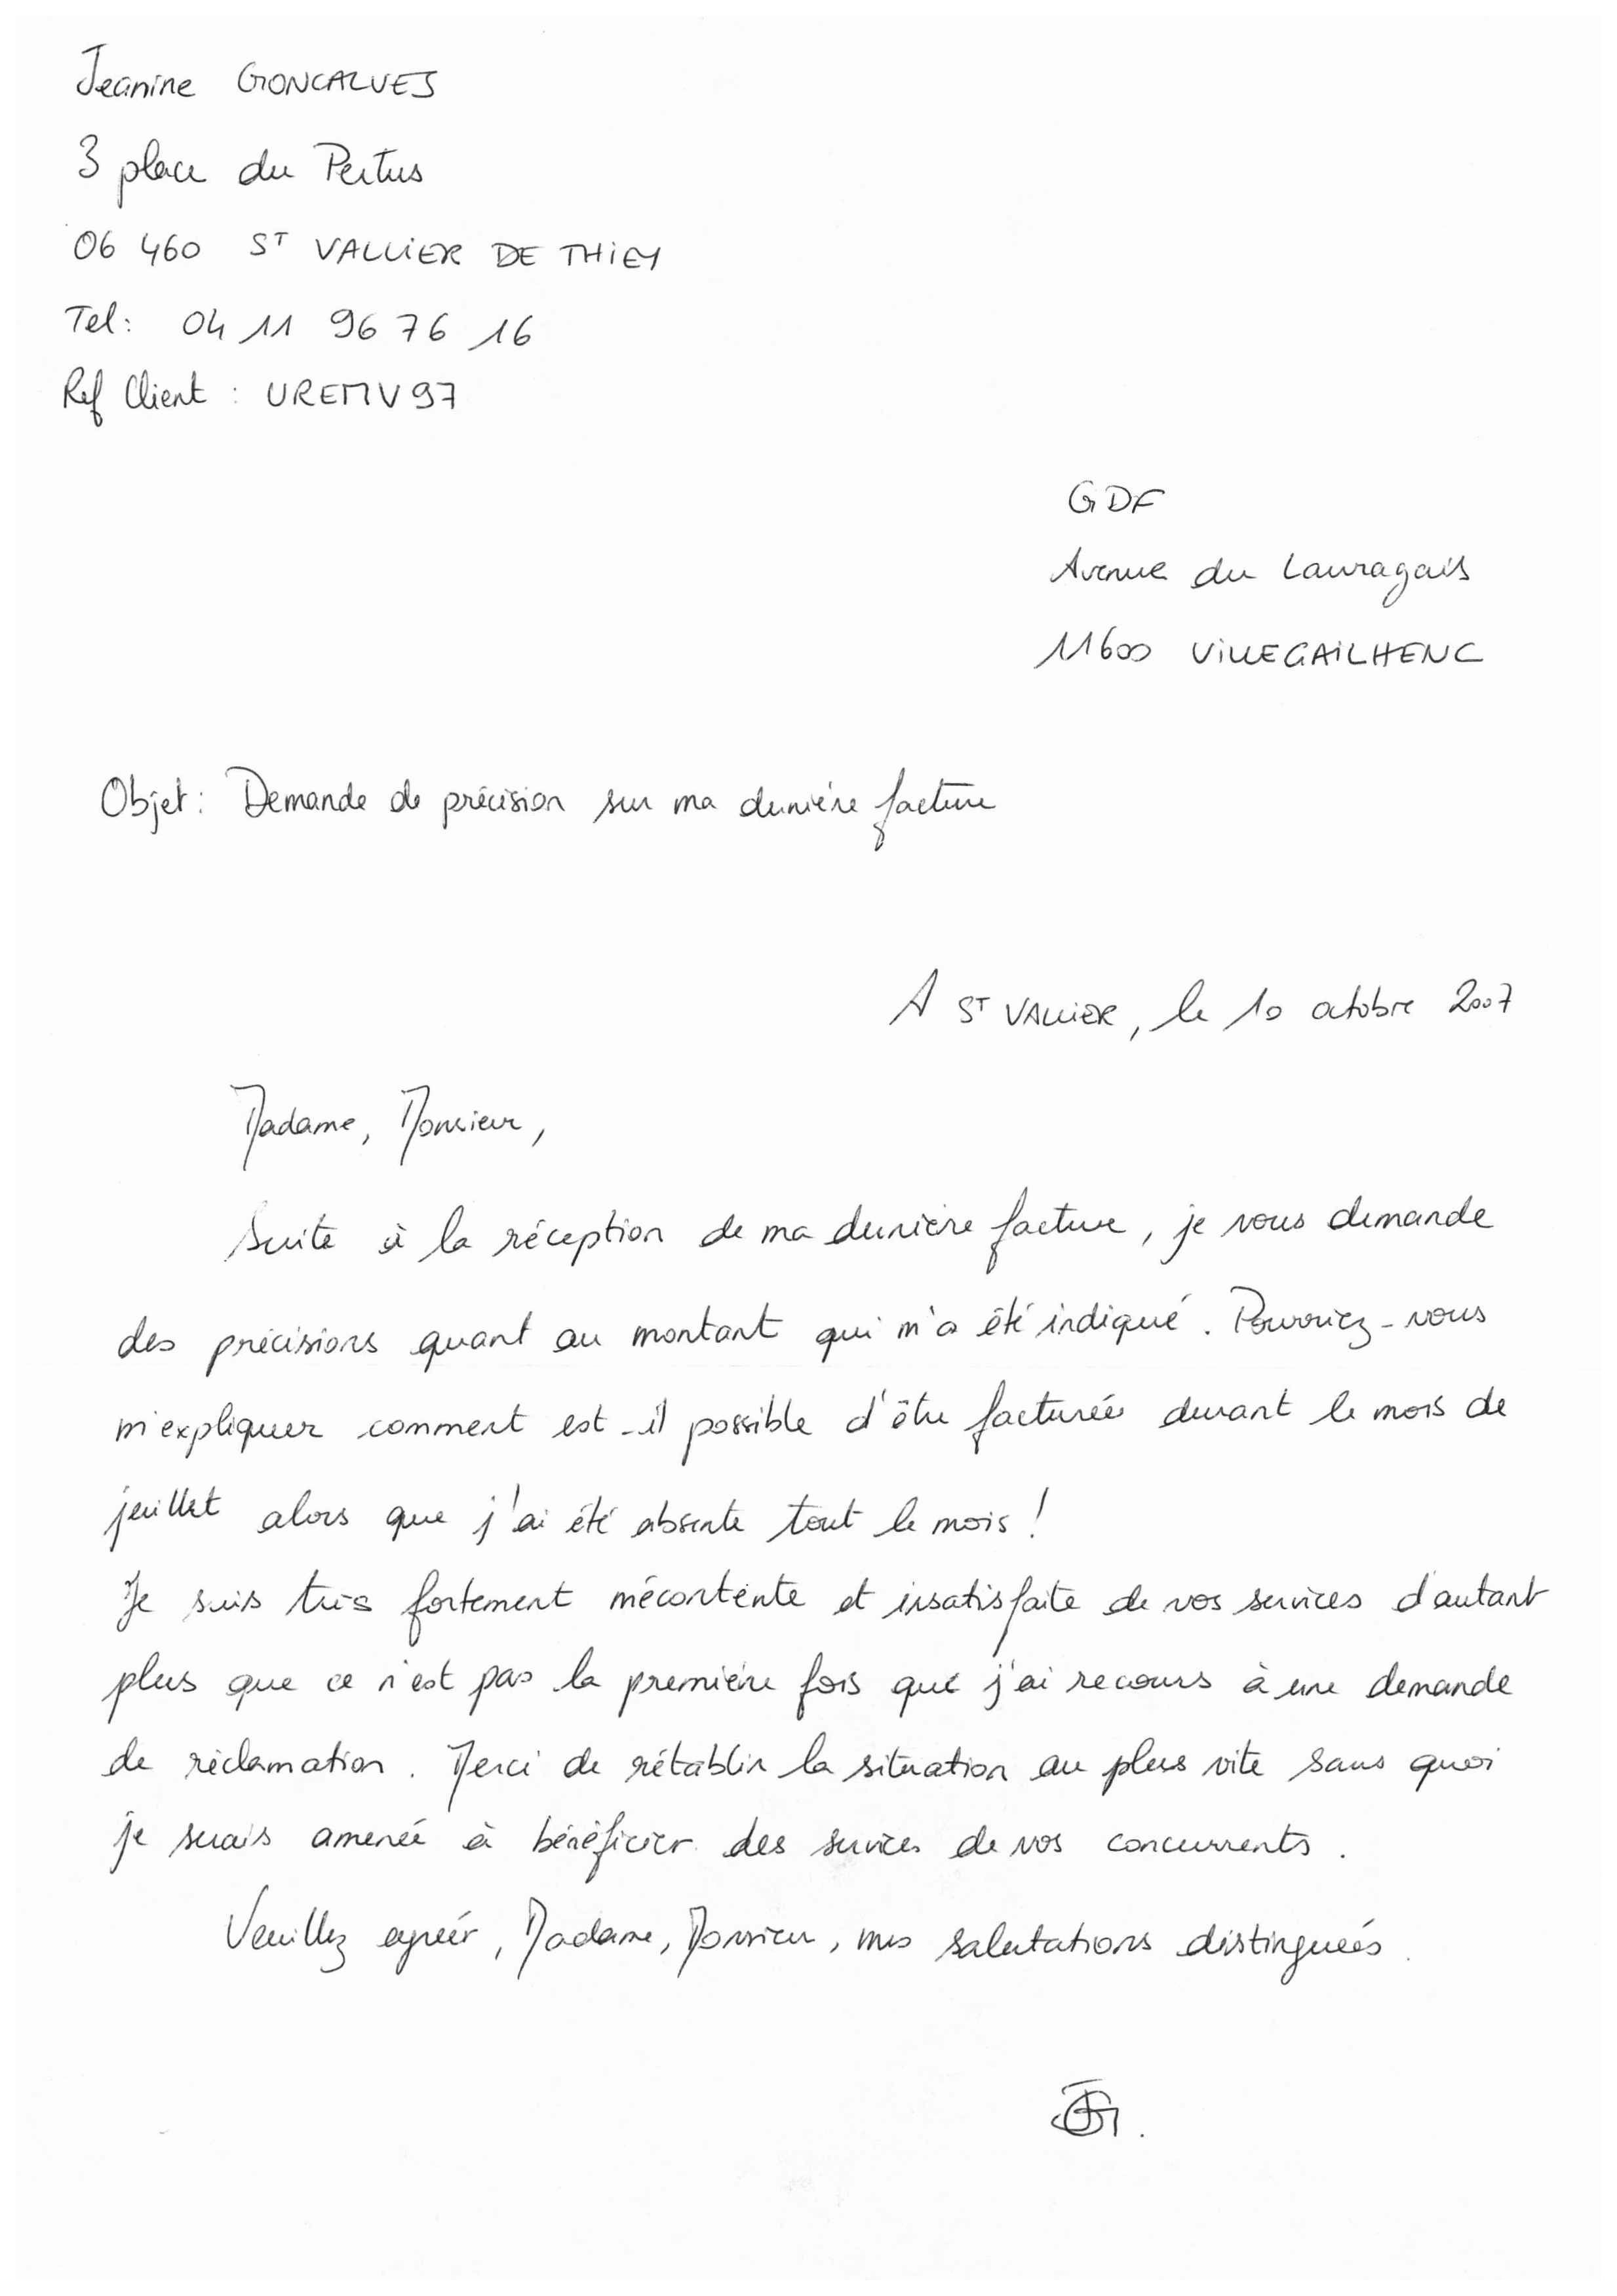 Jeanine GONCALVES
3 place du Pertus
06 460 ST VALLIER DE THIEY
Tel: 04 11 96 76 16
Ref Client : UREMV97
GDF
Avenue du Lauragais
11600 VILLEGAILHENC
Objet: Demande de précision sur ma dernière facture
A ST VALLIER, le 10 octobre 2007
Madame, Monsieur,
Suite à la réception de ma dernière facture, je vous demande
des précisions quant au montant qui m'a été indiqué. Pourriez-vous
m'expliquer comment est-il possible d'être facturée durant le mois de
juillet alors que j'ai été absente tout le mois !
Je suis très fortement mécontente et insatisfaite de vos services d'autant
plus que ce n'est pas la première fois que j'ai recours à une demande
de réclamation. Merci de rétablir la situation au plus vite sans quoi
je serais amenée à bénéficier des services de vos concurrents.
Veuillez agréer, Madame, Monsieur, mes salutations distinguées.
JG.